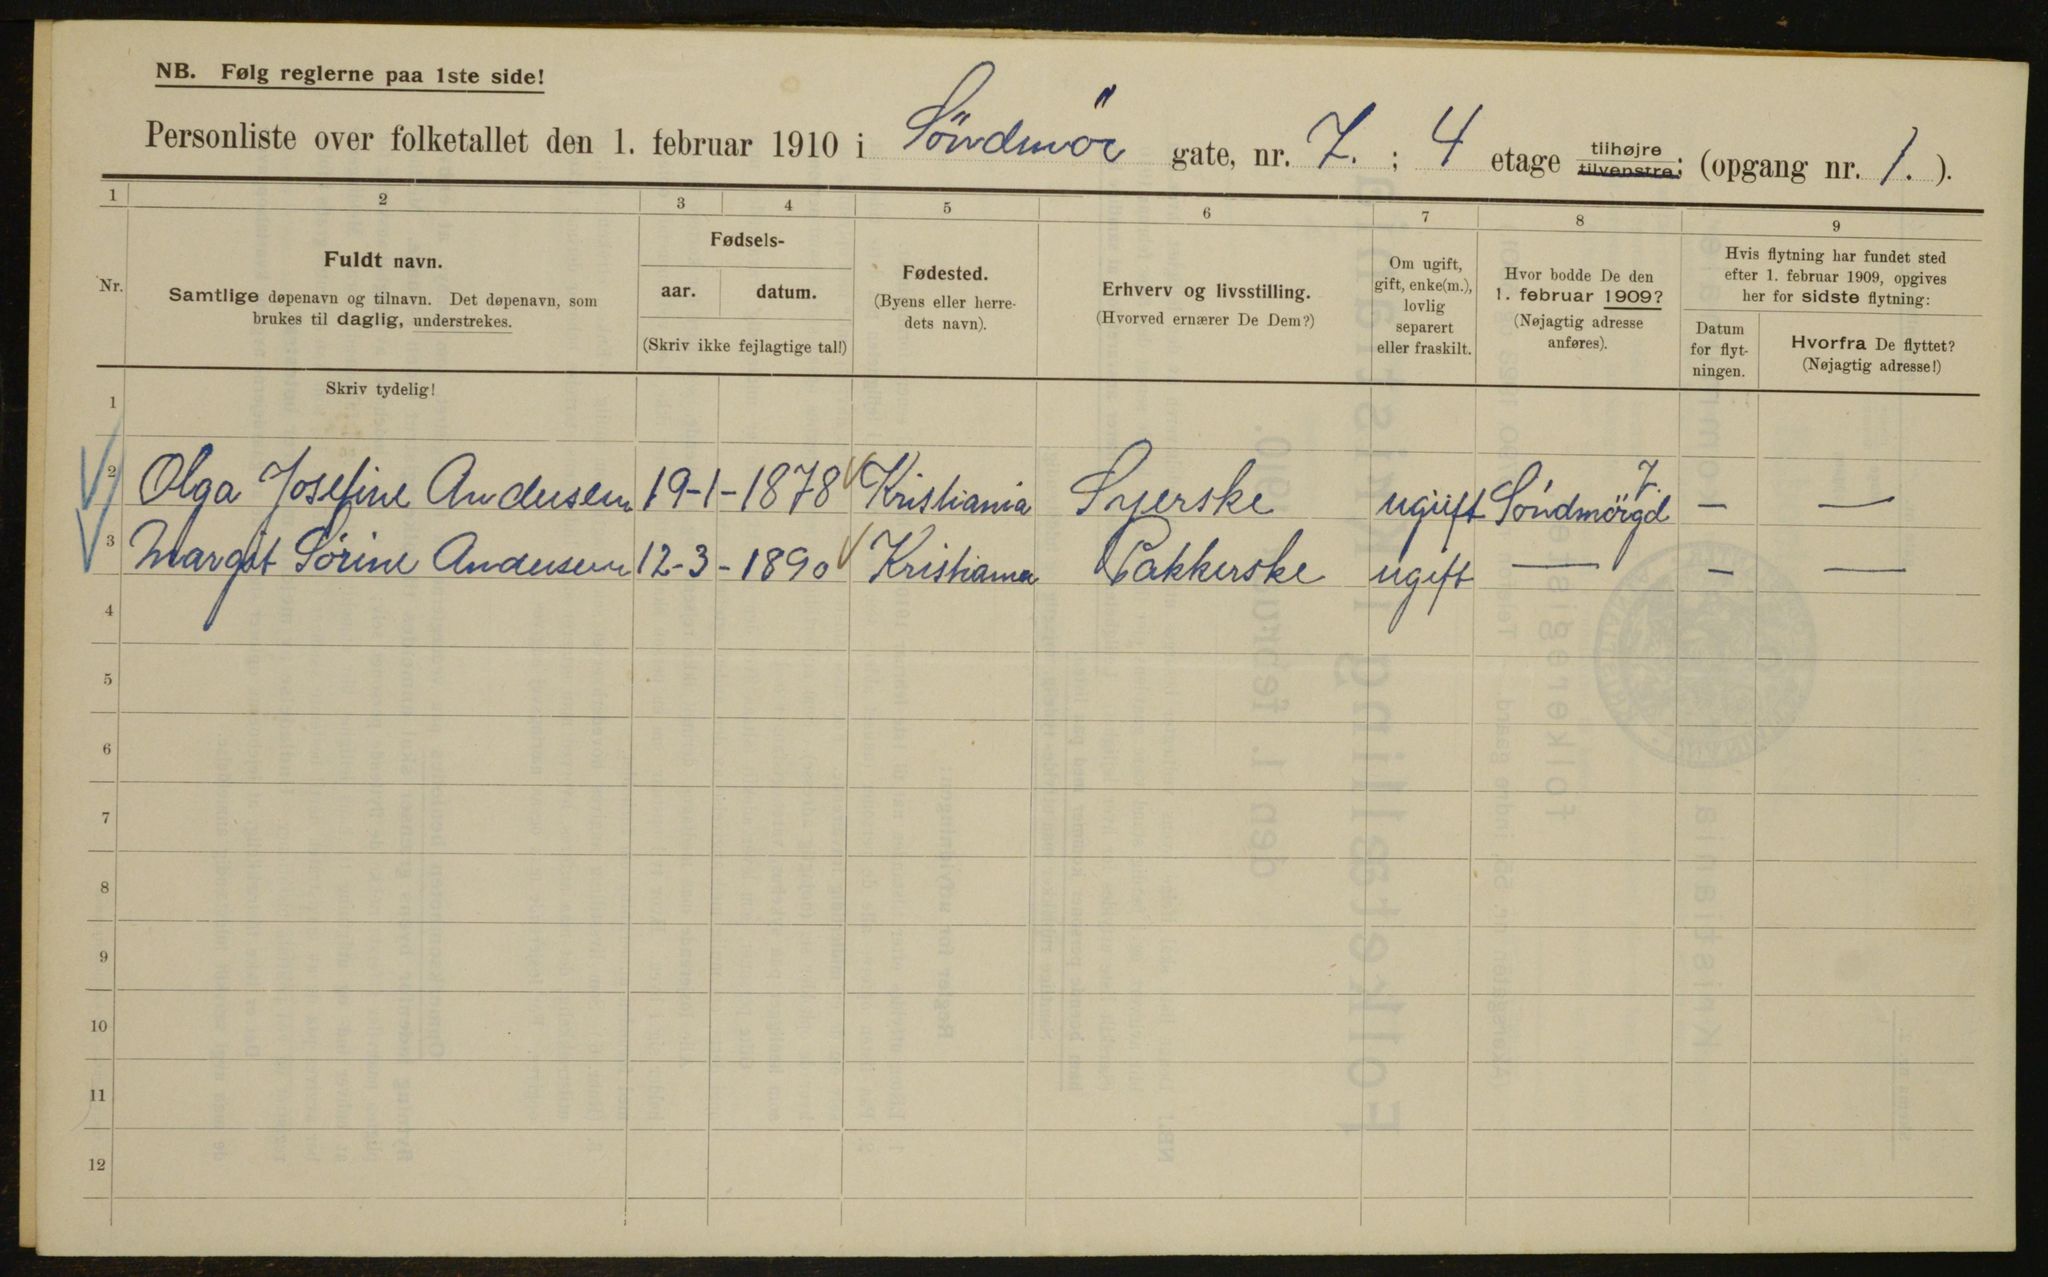 NB. Følg reglerne paa 1ste side!
Personliste over folketallet den 1. februar 1910 i Söndmör gate, nr. 7. ; 4 etage tilhøjre tilvenstre; (opgang nr. 1. ).
1 2 3 4 5 6 7 8 9
Nr.
Fuldt navn.
Samtlige døpenavn og tilnavn. Det døpenavn, som
brukes til daglig, understrekes.
Fødsels-
aar. datum.
(Skriv ikke fejlagtige tal!)
Fødested.
(Byens eller herre-
dets navn).
Erhverv og livsstilling.
(Hvorved ernærer De Dem?)
Om ugift,
gift, enke(m.),
lovlig
separert
eller fraskilt.
Hvor bodde De den
1. februar 1909?
(Nøjagtig adresse
anføres).
Hvis flytning har fundet sted
efter 1. februar 1909, opgives
her for sidste flytning:
Datum
for flyt-
ningen.
Hvorfra De flyttet?
(Nøjagtig adresse!)
Skriv tydelig!
1
2 Olga Josefine Andersen 19-1-1878 Kristiania Syerske ugift Söndmörgd 7. — —
3 Margit Sörine Andersen 12-3-1890 Kristiania Pakkerske ugift — — —
4
5
6
7
8
9
10
11
12